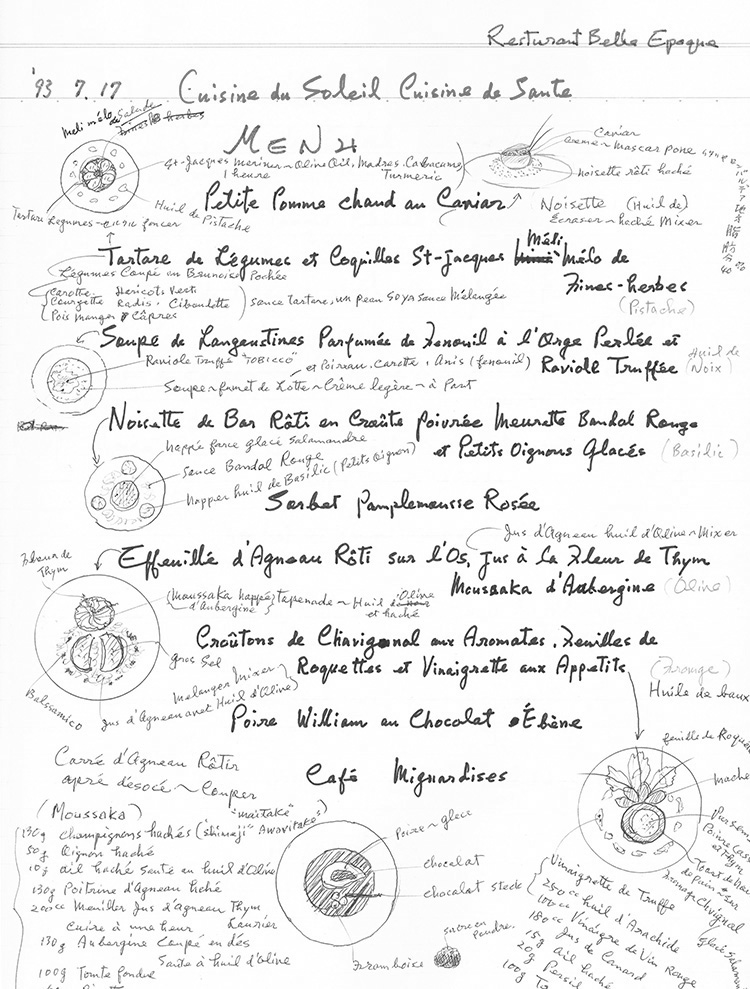 Resturant Bella Epoque
'93 7.17 Cuisine du Soleil Cuisine de Sante
Meli mélo de Salade
Fines herbes
MENU
St-Jacques Mariner ~ Olive Oil, Madras. Curcuma
1 heure Turmeric
Caviar
creme ~ Mascarpone
noisette rôti haché
Petite Pomme chaud au Caviar
Noisette (Huil de)
Ecraser ~ haché Mixer
Huil de Pistache
Tartare Legumes
Tartare de Légumes et Coquilles St-Jacques Méli Mélo de
Fines-herbes
(Pistache)
Légumes Coupé en Brunoise Pochée
Carotte Hericots Verts
Courgette Radis. Ciboulette
Pois Manger Câpres
sauce tartare, un peau SOYA sauce Mélangée
Soupe de Langoustines Parfumée de Fenouil à l'Orge Perlée et
Raviole Truffée
Huil de (Noix)
Raviole Truffe "TOBICCO" et Poireau. Carotte. Anis (fenouil)
Soupe ~ fumet de Lotte ~ Crème legère ~ à Part
Noisette de Bar Rôti en Croûte Poivrée Meurette Bandol Rouge
et Petits Oignons Glacés (Basilic)
nappé farce glacé Salamandre
Sauce Bandal Rouge
napper huil de Basilic (Petits Oignon)
Sorbet Pamplemousse Rosée
Jus d'Agneau huil d'Olive ~ Mixer
Effeuillé d'Agneau Rôti sur l'Os, Jus à la Fleur de Thym
Moussaka d'Aubergine (Olive)
Fleur de Thym
(Moussaka nappé d'Aubergine) tapenade ~ Huil Olive
et haché
gros Sel
Balssamico
Jus d'Agneau avet Huil d'Olive
Melanger Mixer
Croûtons de Chavignonal aux Aromates. Feuilles de
Roquettes et Vinaigrette aux Appetits
(Frouge)
Huile de baux
Poire William au Chocolat Ébène
Café Mignardises
Carré d'Agneau Rôtir
apré désocé ~ Couper
(Moussaka)
"maitake"
130g Champignons hachés ("shimeji" Awavitake)
50g Oignon haché
10g ail haché Sauté au huil d'Olive
130g Poitrine d'Agneau hché
200cc Mouiller Jus d'Agneau Thym
Cuire à une heur Laurier
130g Aubergine Coupé en dés
Sauté à huil d'olive
100g Tomte fondue
Poire ~ glace
chocolat
chocolat
sucre en poudre
Framboise
feuille de Roque
mache
Vinaigrette de Truffe
250cc huil d'Arachide
100cc Vinaigre de Vin Rouge
180cc Jus de Canard
15g ail haché
20g Persil
100g To